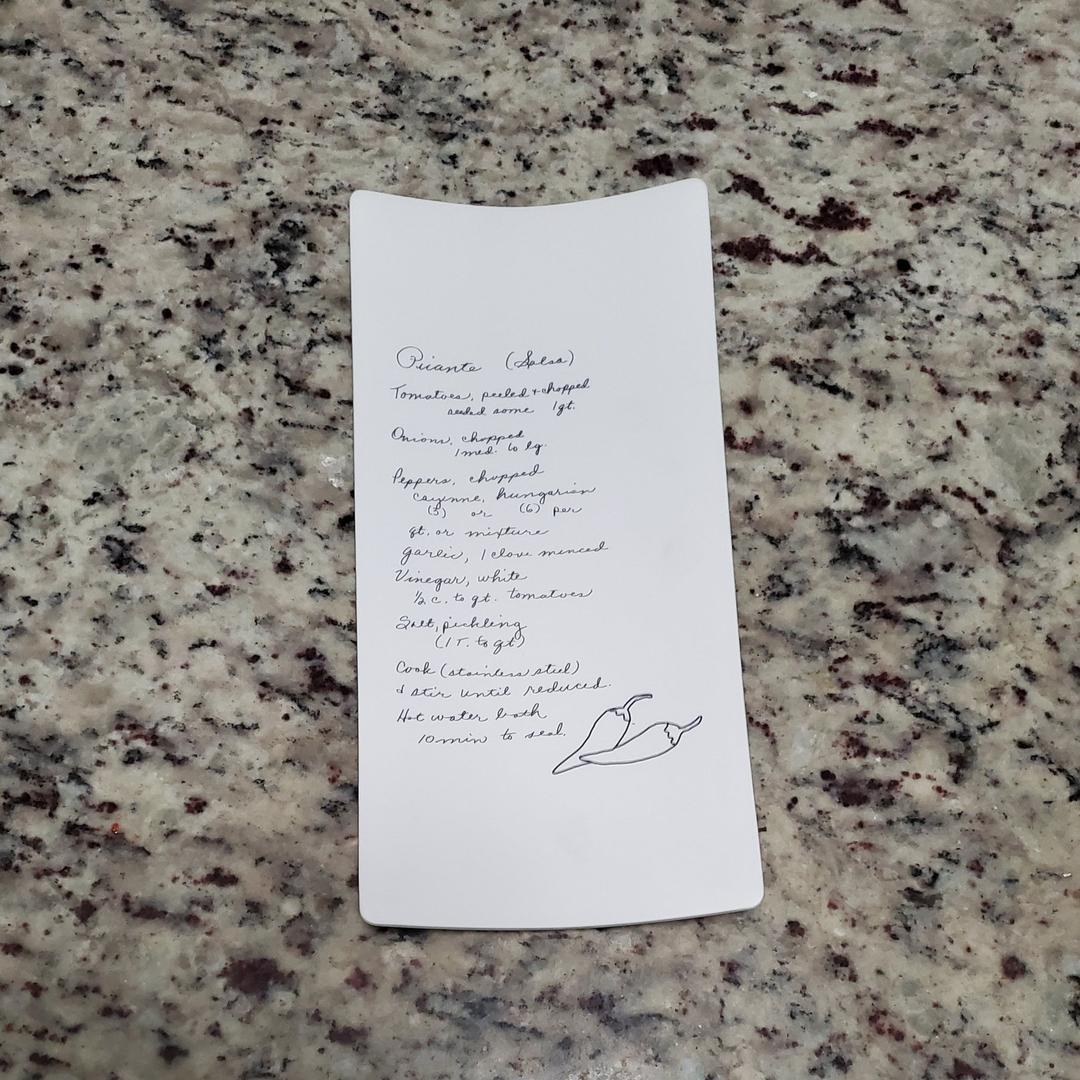 Picante (Salsa)
Tomatoes, peeled + chopped
seeded some 1 qt.
Onions, chopped
1 med. to lg.
Peppers, chopped
cayinne, hungarian
(3) or (6) per
qt. or mixture
garlic, 1 clove minced
Vinegar, white
½ c. to qt. tomatoes
Salt, pickling
(1 T. to qt)
Cook (stainless steel)
& stir until reduced.
Hot water bath
10 min to seal.